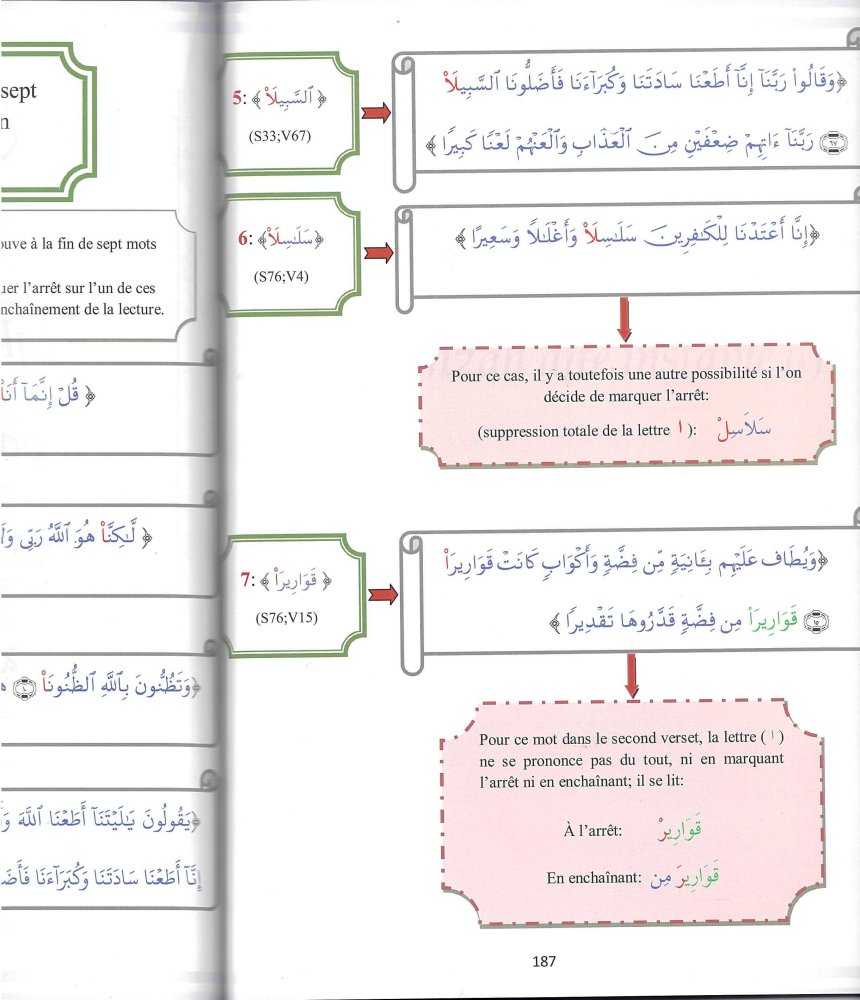 sept
n
ouve à la fin de sept mots
uer l’arrêt sur l’un de ces
nchaînement de la lecture.
﴿ قُلْ إِنَّمَآ أَنَا۠
﴿ لَّـٰكِنَّا۠ هُوَ ٱللَّهُ رَبِّى وَلَا
﴿وَتَظُنُّونَ بِٱللَّهِ ٱلظُّنُونَا۠ ۝١٠
﴿يَقُولُونَ يَـٰلَيْتَنَآ أَطَعْنَا ٱللَّهَ
إِنَّآ أَطَعْنَا سَادَتَنَا وَكُبَرَآءَنَا
5: ﴿ ٱلسَّبِيلَا۠ ﴾
(S33;V67)
﴿وَقَالُوا۟ رَبَّنَآ إِنَّآ أَطَعْنَا سَادَتَنَا وَكُبَرَآءَنَا فَأَضَلُّونَا ٱلسَّبِيلَا۠
۝٦٧ رَبَّنَآ ءَاتِهِمْ ضِعْفَيْنِ مِنَ ٱلْعَذَابِ وَٱلْعَنْهُمْ لَعْنًا كَبِيرًا ﴾
6: ﴿سَلَـٰسِلَا۟﴾
(S76;V4)
﴿إِنَّآ أَعْتَدْنَا لِلْكَـٰفِرِينَ سَلَـٰسِلَا۟ وَأَغْلَـٰلًا وَسَعِيرًا ﴾
Pour ce cas, il y a toutefois une autre possibilité si l’on
décide de marquer l’arrêt:
(suppression totale de la lettre ا ): سَلَاسِلْ
7: ﴿ قَوَارِيرَا۠ ﴾
(S76;V15)
﴿وَيُطَافُ عَلَيْهِم بِـَٔانِيَةٍ مِّن فِضَّةٍ وَأَكْوَابٍ كَانَتْ قَوَارِيرَا۠
۝١٥ قَوَارِيرَا۟ مِن فِضَّةٍ قَدَّرُوهَا تَقْدِيرًا ﴾
Pour ce mot dans le second verset, la lettre ( ا )
ne se prononce pas du tout, ni en marquant
l’arrêt ni en enchaînant; il se lit:
À l’arrêt: قَوَارِيرْ
En enchaînant: قَوَارِيرَ مِن
187